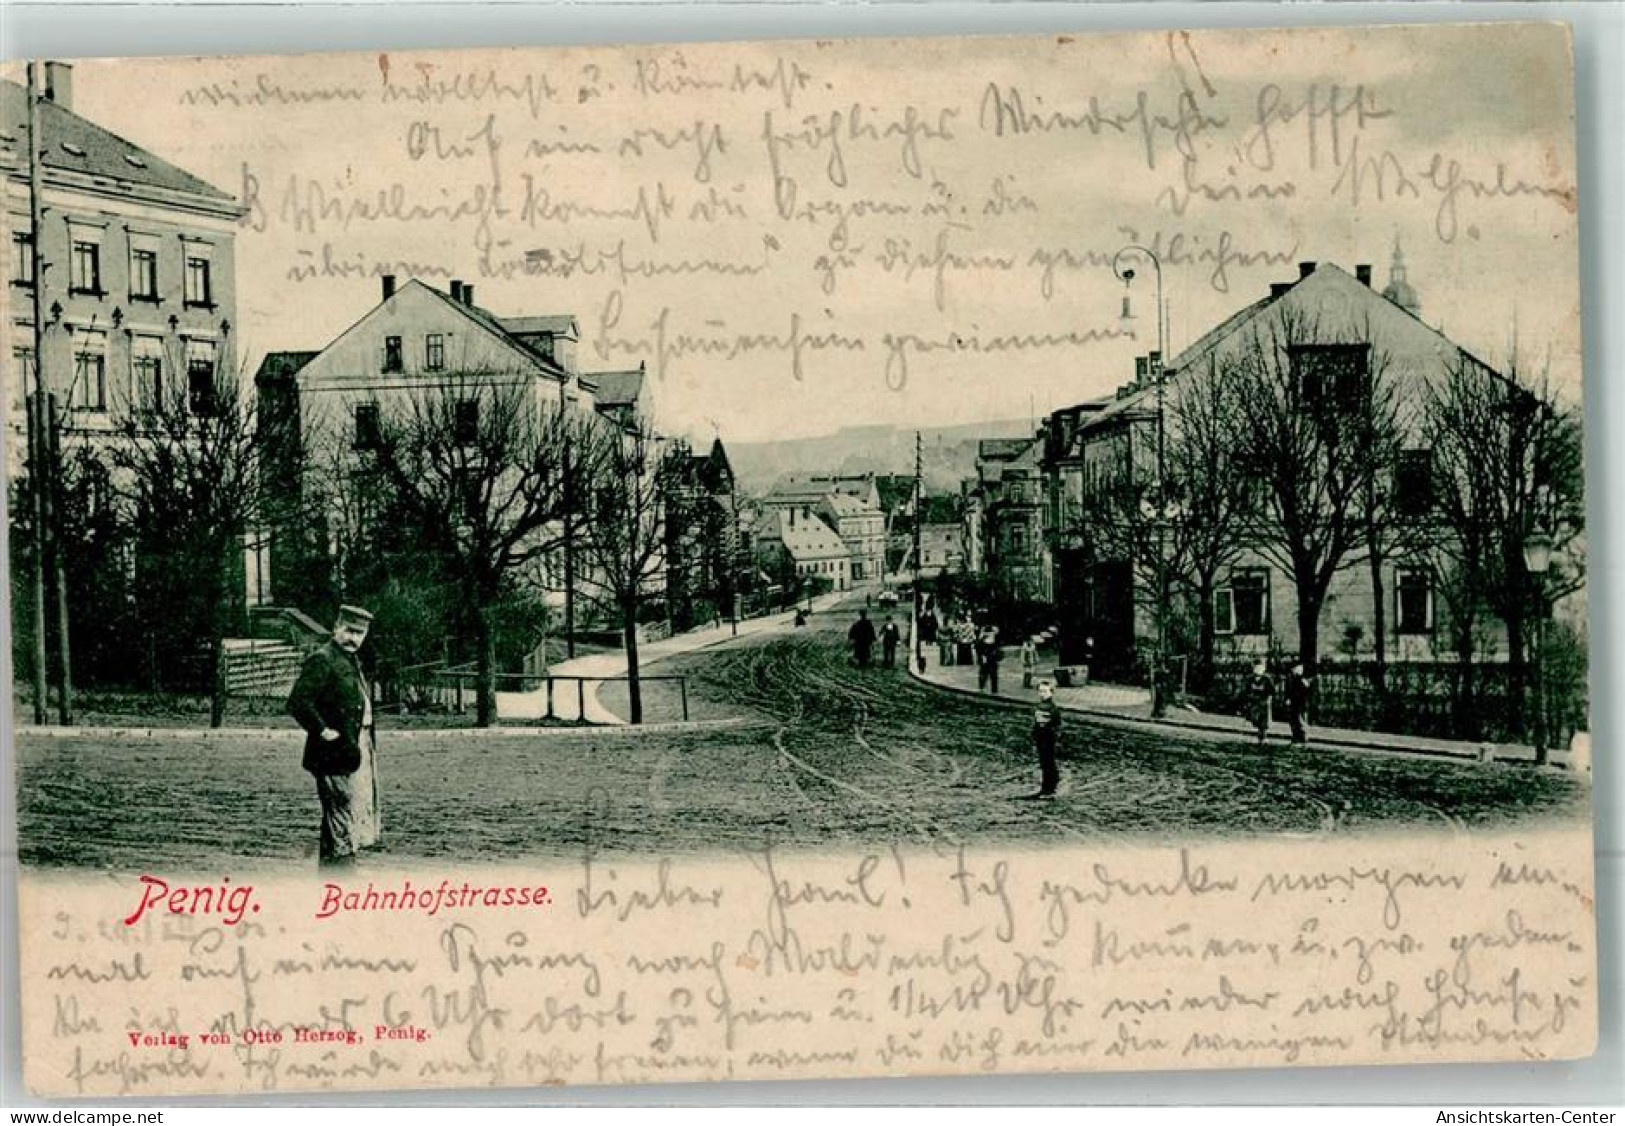 widmen wolltest u. könntest.
Auf ein recht fröhliches Wiedersehn hofft
Dein Wilhelm
Vielleicht kannst du Organ u. die
übrigen zu diesem gemütlichen
Beisammensein gewinnen.
Penig. Bahnhofstrasse.
Lieber Paul! Ich gedenke morgen ein-
mal auf einen Sprung nach Waldenbg zu kommen, u. zw. geden-
ke ich abends 6 Uhr dort zu sein u. 1/4 Uhr wieder nach Hause zu
Verlag von Otto Herzog, Penig.
fahren. Ich würde mich sehr freuen, wenn du dich mir die wenigen Stunden
Ansichtskarten-Center